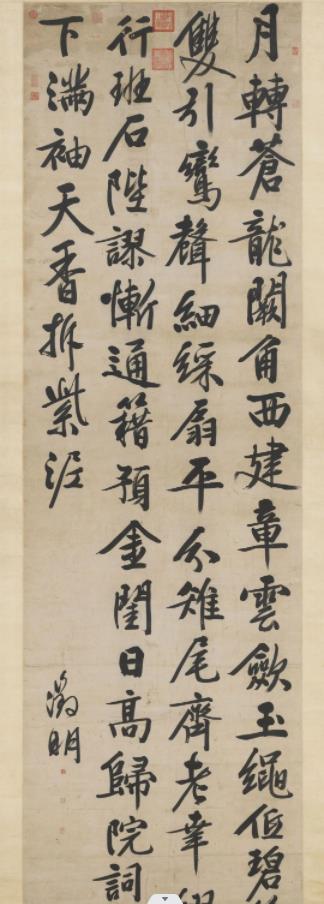 月轉蒼龍闕角西建章雲歛玉繩低碧
雙引鸞聲細綵扇平分雉尾齊老幸
行班石陛謬慚通籍預金閨日高歸院詞
下滿袖天香拆紫泥
徵明